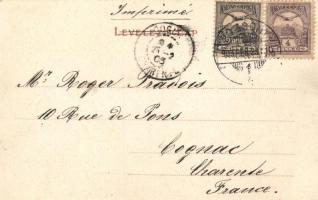 Imprimé
LEVELEZŐ-LAP
Mr Roger Frabois
10 Rue de Pons
Cognac
Charente
France.